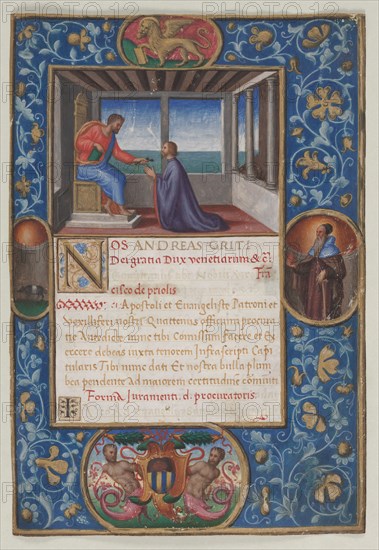 NOS ANDREAS GRITI
Dei gratia Dux venetiarum & c̃
Frã
cisco de priolis
ci Apostoli et Evangeliste Patroni et
Vexilliferi nostri Quattenus officium procura
hunc tibi Comissum Facere et Ex
ercere debeas iuxta tenorem Infrascripti Capi
tularis Tibi nunc dati Et nostra bulla plum
bea pendente Ad maiorem certitudinẽ comuniti
Forma Juramenti d. procuratoris
I